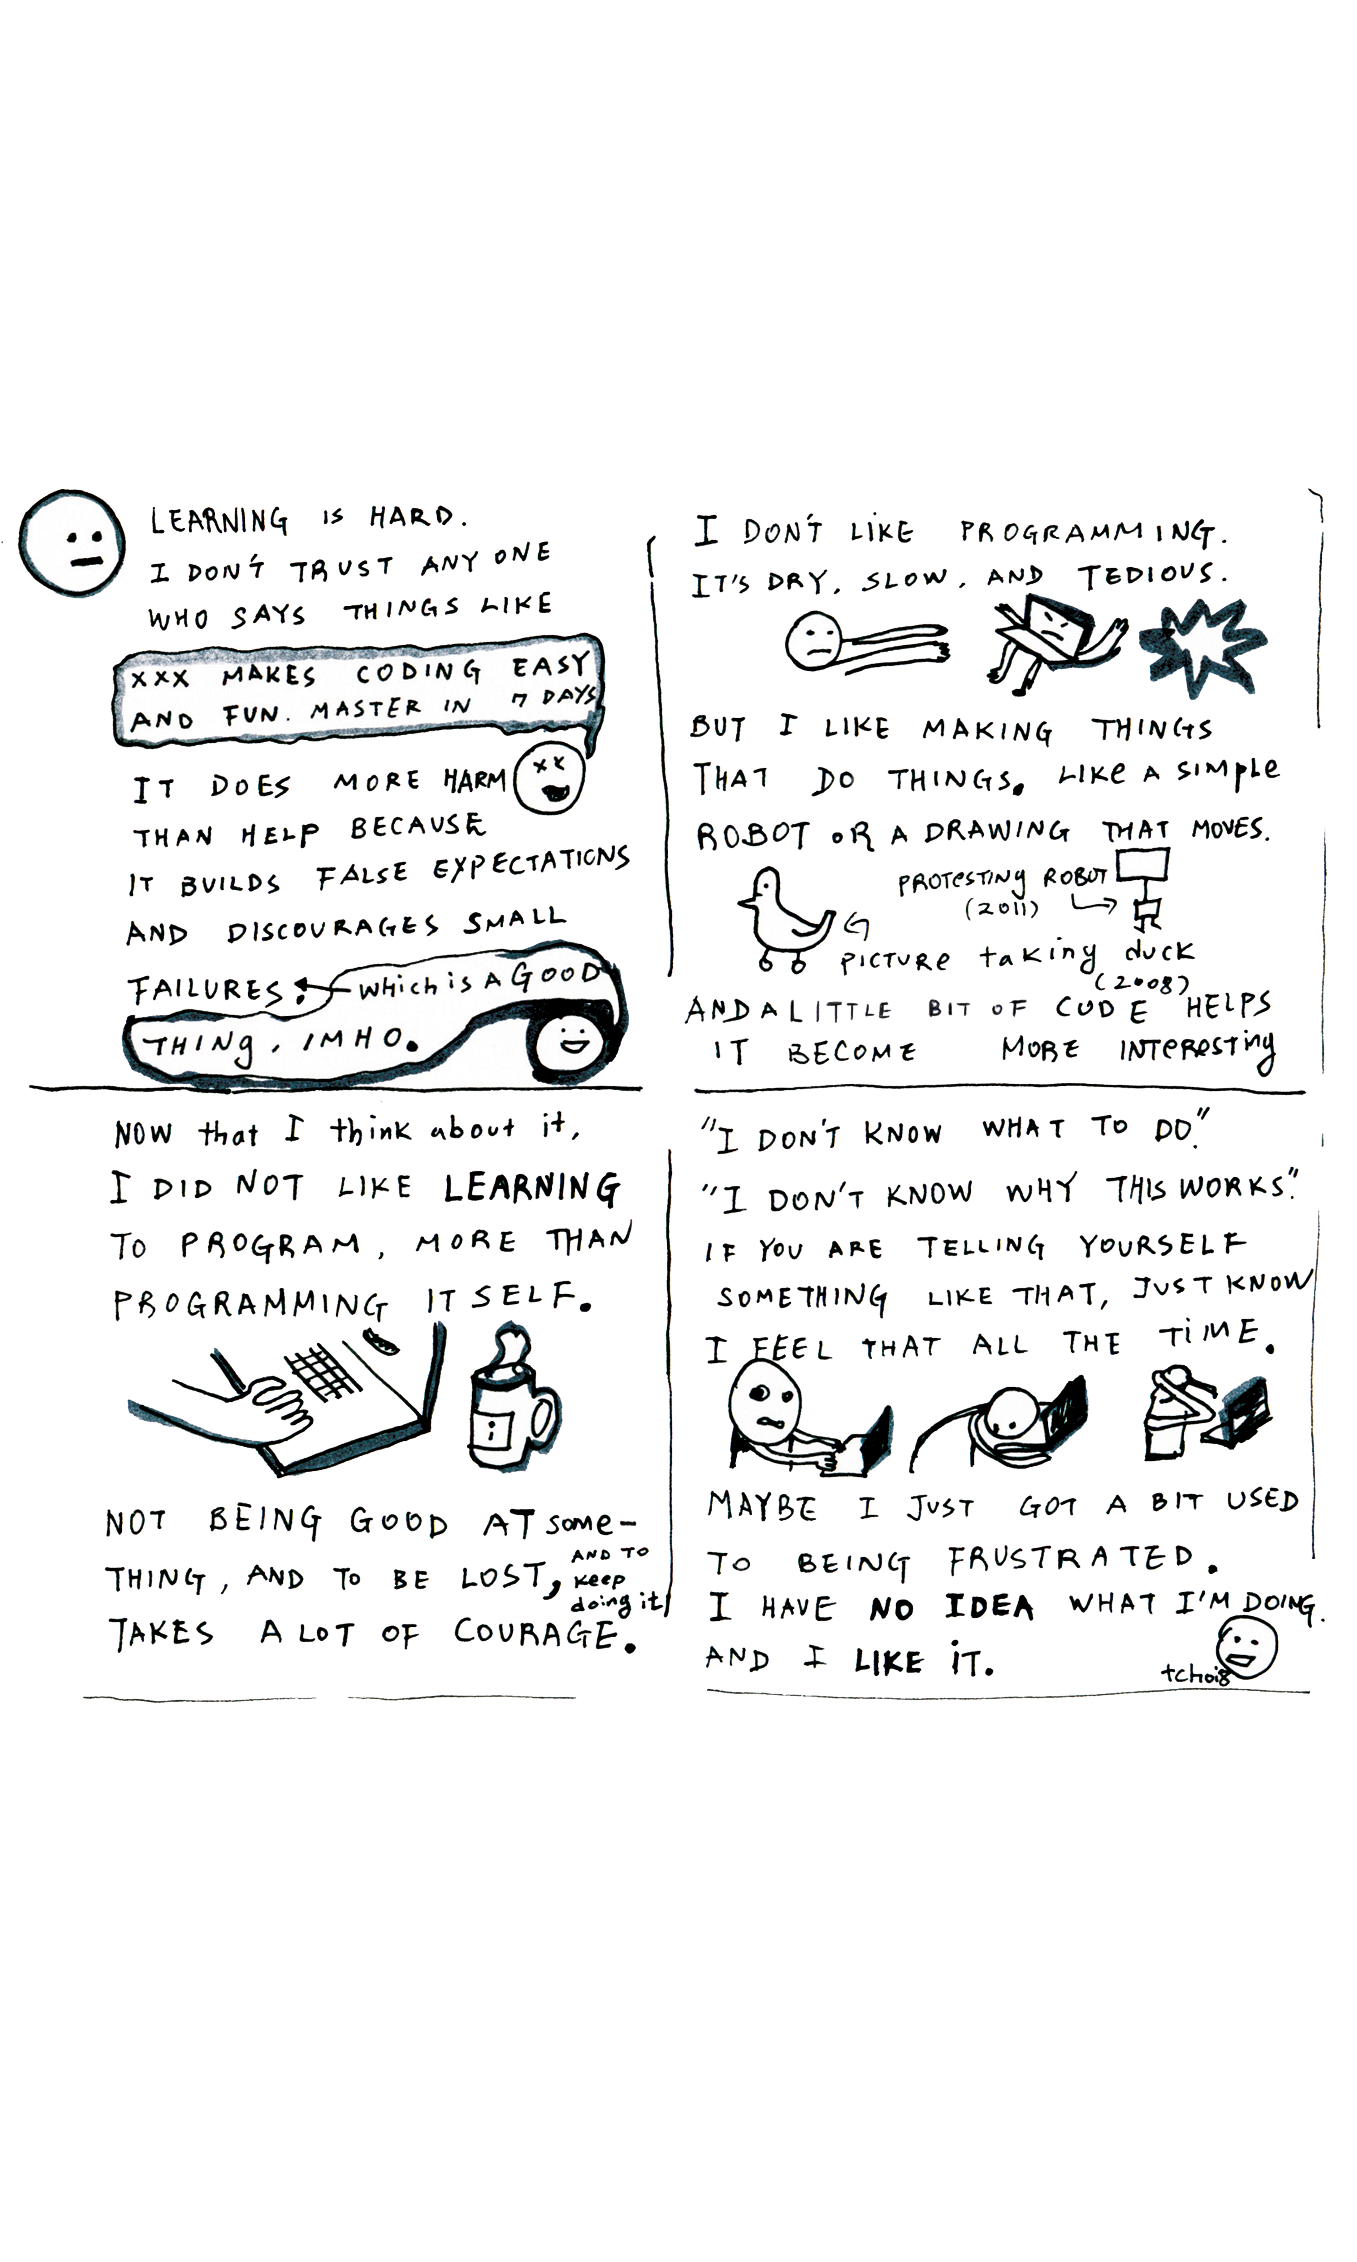 LEARNING IS HARD.
I DON'T TRUST ANY ONE
WHO SAYS THINGS LIKE
XXX MAKES CODING EASY
AND FUN. MASTER IN 7 DAYS
IT DOES MORE HARM
THAN HELP BECAUSE
IT BUILDS FALSE EXPECTATIONS
AND DISCOURAGES SMALL
FAILURES. which is A GOOD
THING, IMHO.
I DON'T LIKE PROGRAMMING.
IT'S DRY, SLOW, AND TEDIOUS.
BUT I LIKE MAKING THINGS
THAT DO THINGS. LIKE A SIMPLE
ROBOT OR A DRAWING THAT MOVES.
PROTESTING ROBOT
(2011)
PICTURE taking duck
(2008)
AND A LITTLE BIT OF CODE HELPS
IT BECOME MORE INTERESTING
NOW that I think about it,
I DID NOT LIKE LEARNING
TO PROGRAM, MORE THAN
PROGRAMMING ITSELF.
;
NOT BEING GOOD AT some-
THING, AND TO BE LOST,
AND TO
keep
doing it
TAKES A LOT OF COURAGE.
"I DON'T KNOW WHAT TO DO."
"I DON'T KNOW WHY THIS WORKS."
IF YOU ARE TELLING YOURSELF
SOMETHING LIKE THAT, JUST KNOW
I FEEL THAT ALL THE TIME.
MAYBE I JUST GOT A BIT USED
TO BEING FRUSTRATED.
I HAVE NO IDEA WHAT I'M DOING.
AND I LIKE IT.
tchoi8